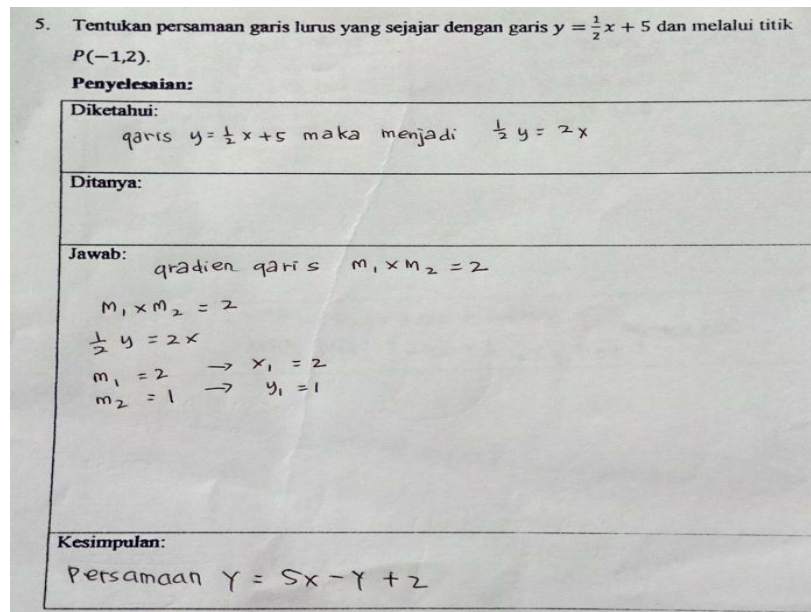 5. Tentukan persamaan garis lurus yang sejajar dengan garis y = 1/2 x + 5 dan melalui titik
P(−1,2).
Penyelesaian:
Diketahui:
garis y = 1/2 x + 5 maka menjadi 1/2 y = 2x
Ditanya:
Jawab:
gradien garis m₁ × m₂ = 2
m₁ × m₂ = 2
1/2 y = 2x
m₁ = 2 → x₁ = 2
m₂ = 1 → y₁ = 1
Kesimpulan:
Persamaan Y = 5x − Y + 2